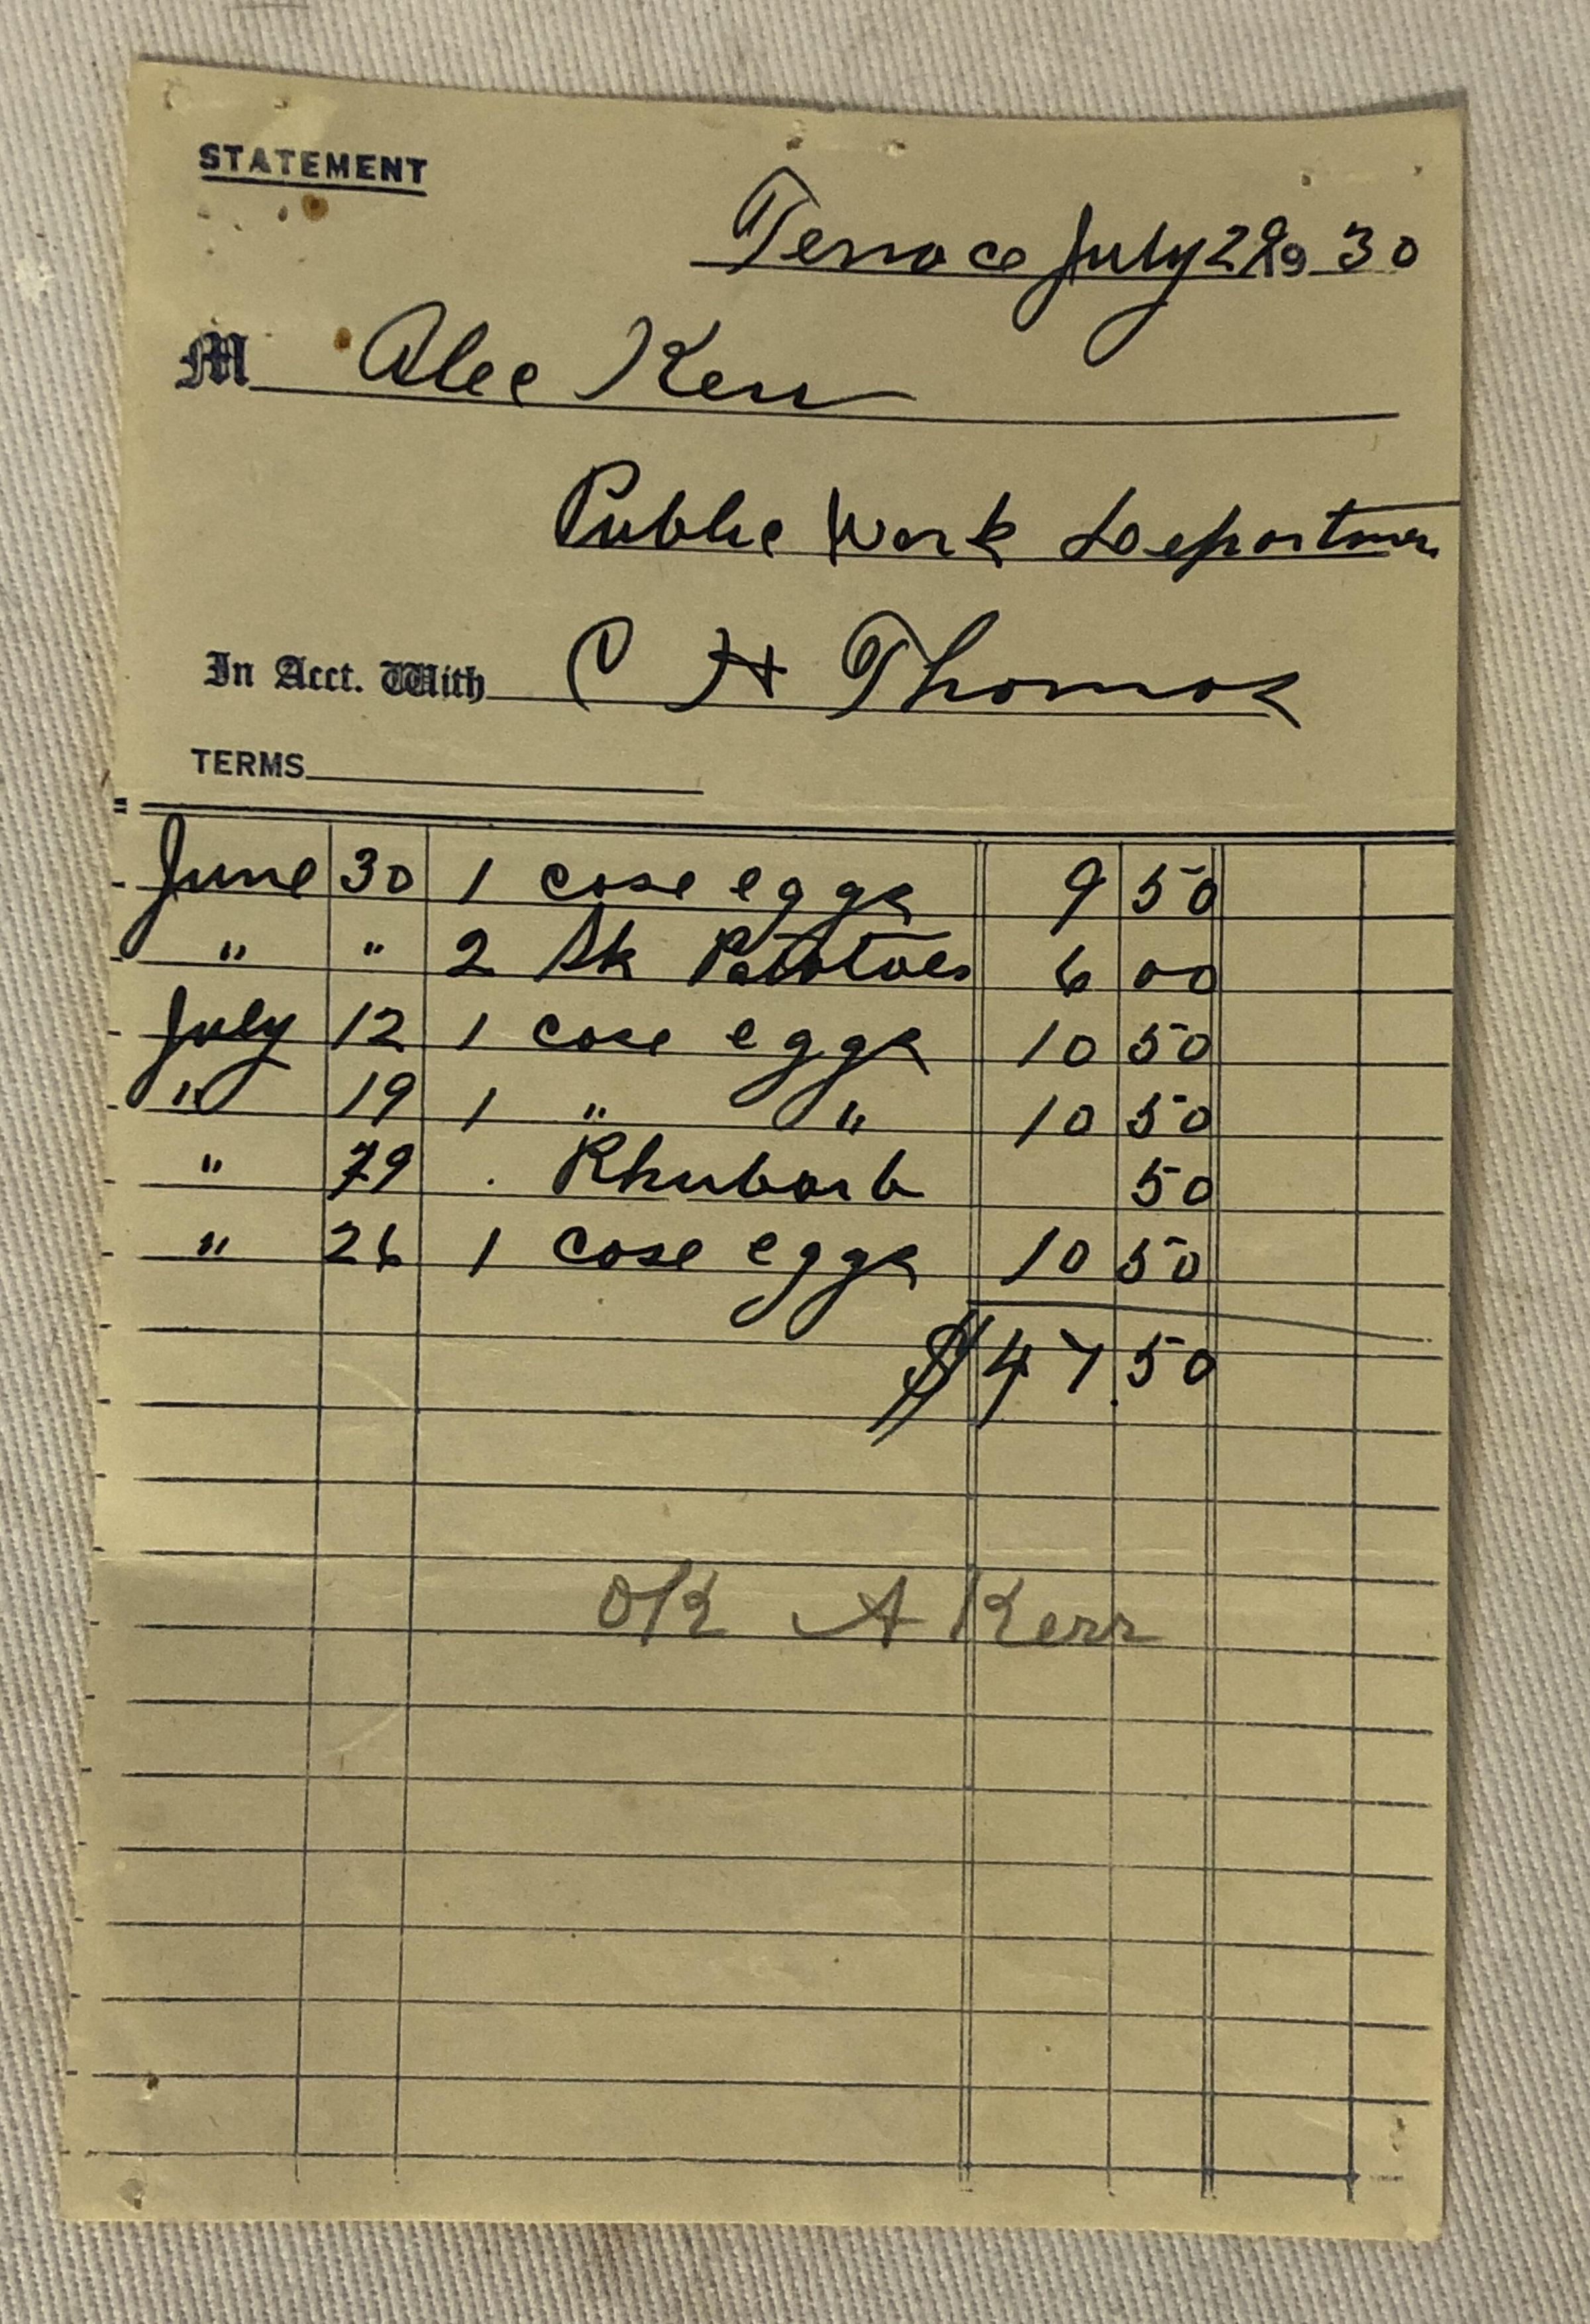 STATEMENT
Terrace July 28 1930
M Alec Kerr
Public Work Departmen
In Acct. With C H Thomas
TERMS
June 30 1 case eggs 9 50
" " 2 Sk Potatoes 6 00
July 12 1 case eggs 10 50
" 19 1 " " 10 50
" 19 . Rhubarb 50
" 26 1 case eggs 10 50
$47.50
OK A Kerr